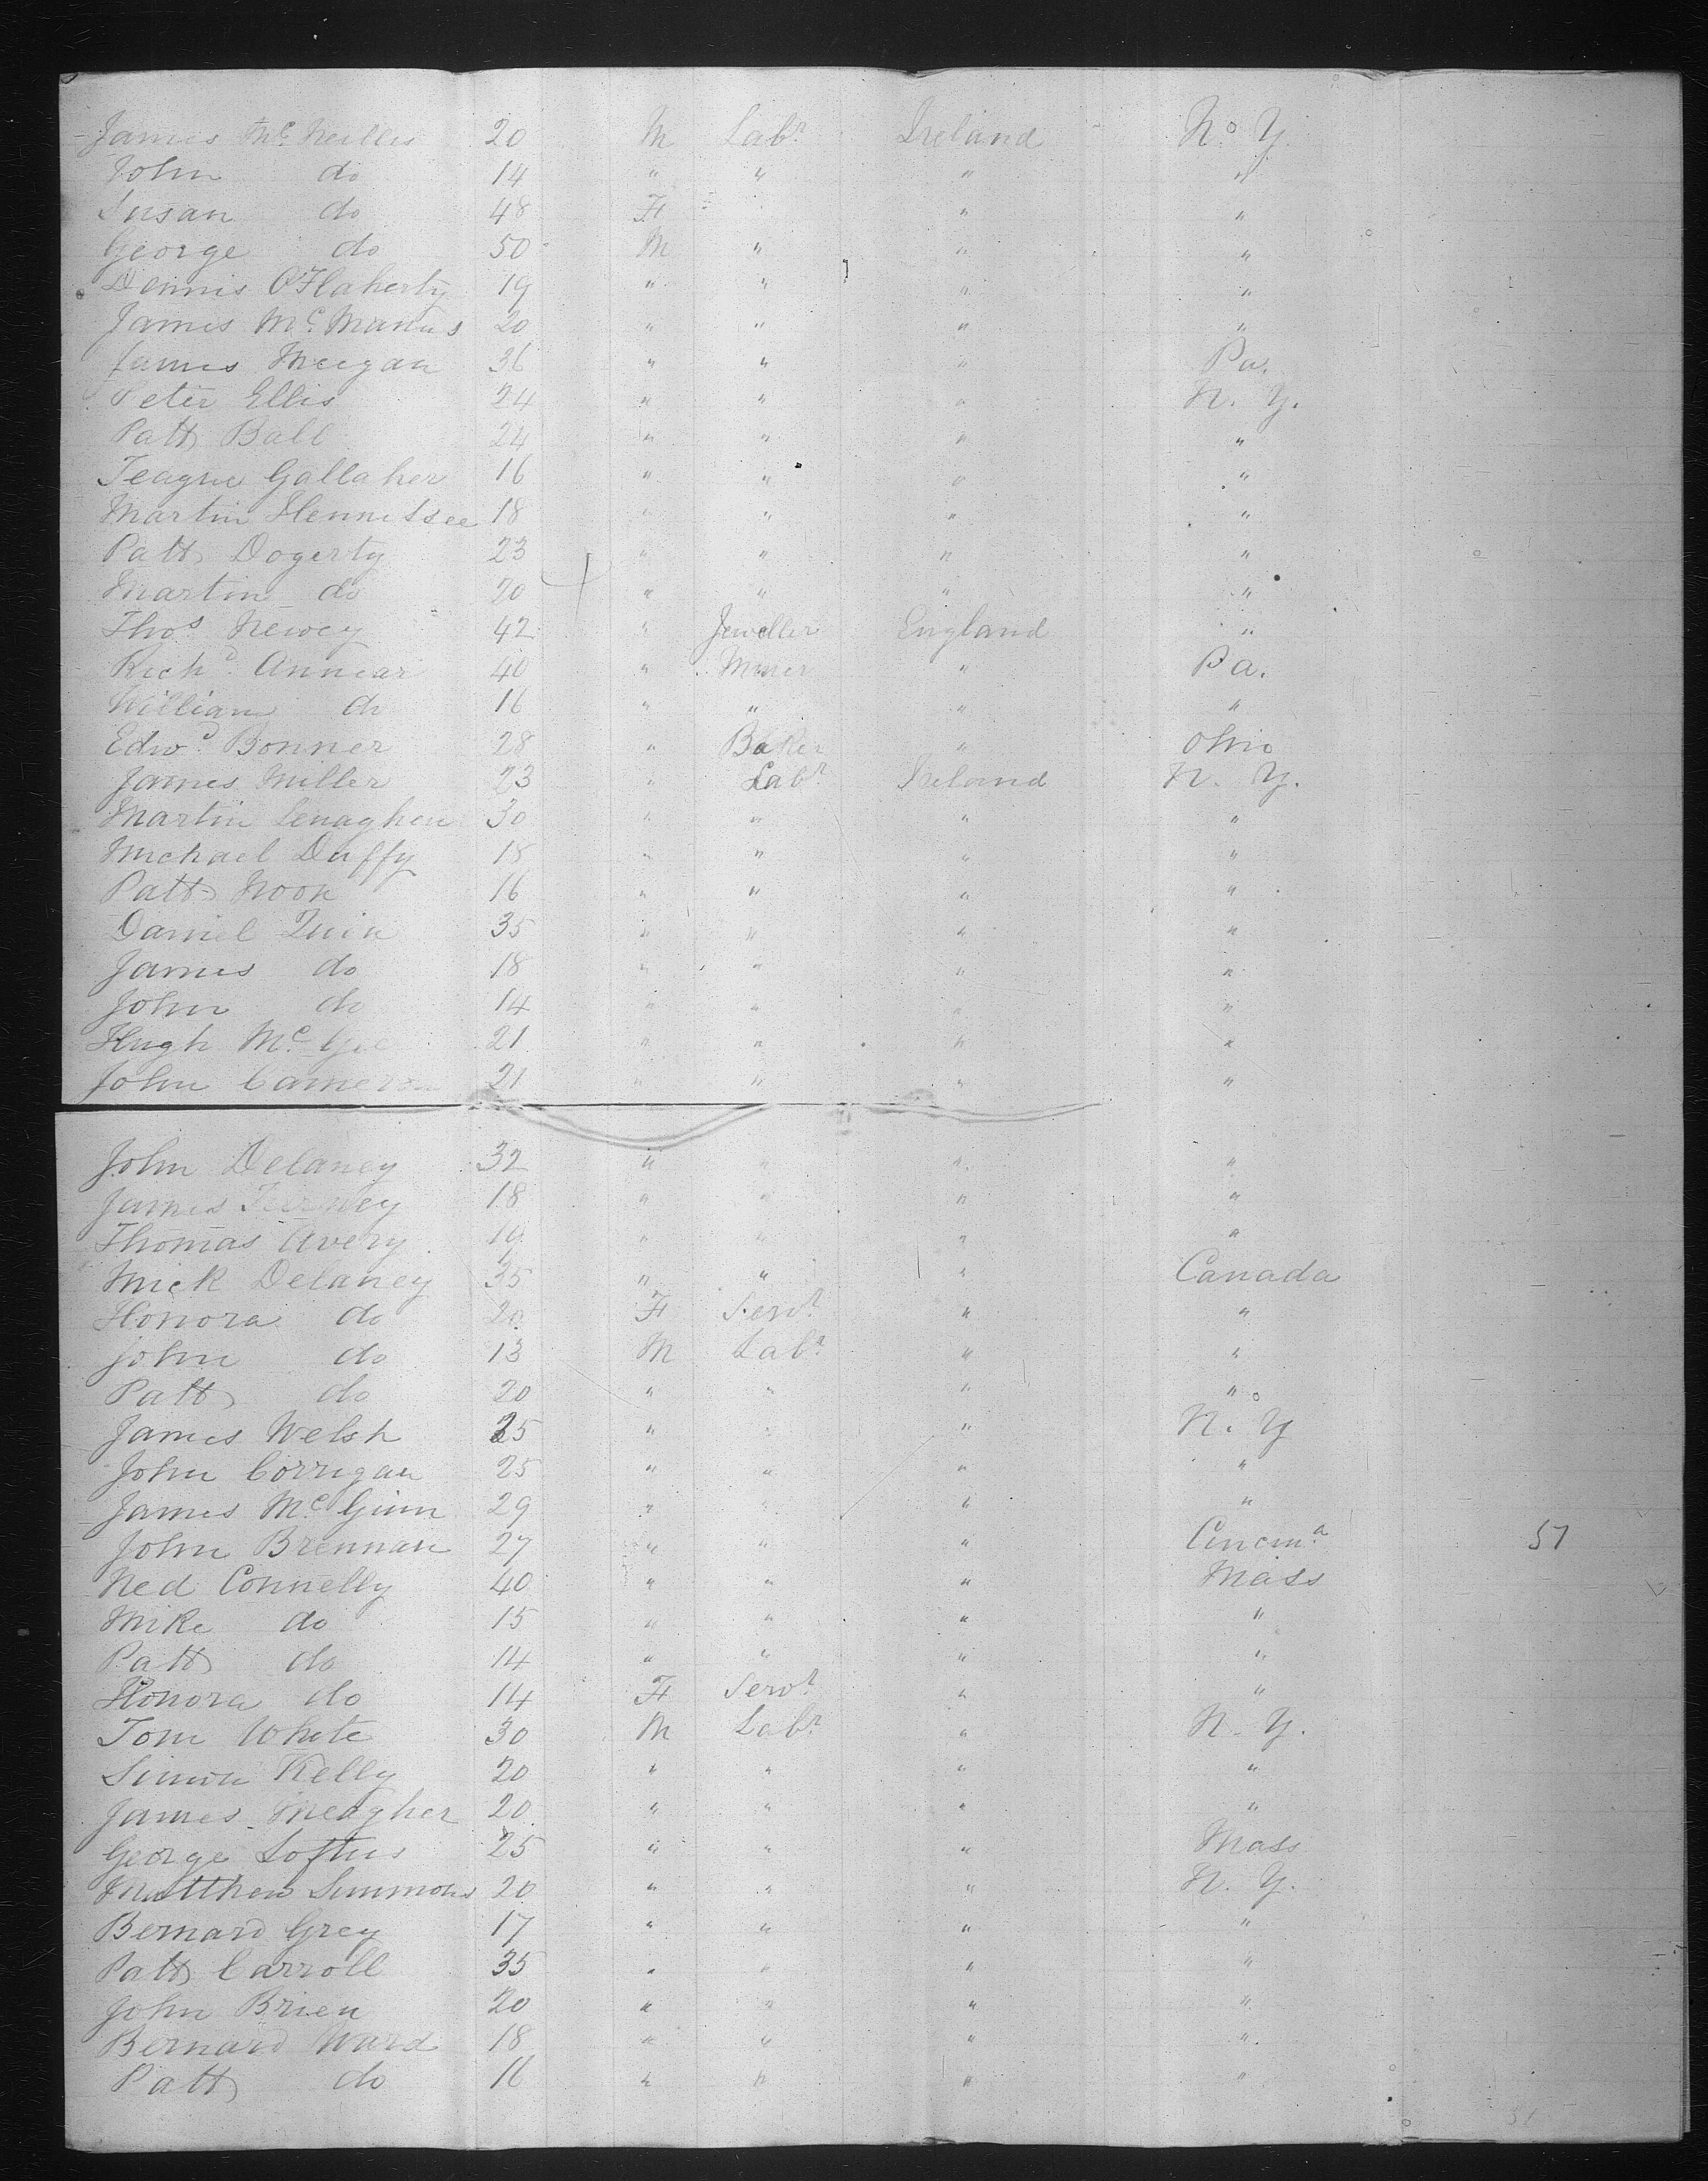 James McNeillis 20 M Labr Ireland N. Y.
John do 14 " " " "
Susan do 48 F " "
George do 50 M " " "
Dennis O'Flaherty 19 " " " "
James McManus 20 " " " "
James Meegan 36 " " " Pa.
Peter Ellis 24 " " " N. Y.
Patt Ball 24 " " " "
Teague Gallaher 16 " " " "
Martin Hennessee 18 " " " "
Patt Dogerty 23 " " " "
Martin do 20 " " " "
Thos Newey 42 " Jeweller England "
Richd Annear 40 " Miner " Pa.
William do 16 " " " "
Edwd Bonner 28 " Baker " Ohio
James Miller 23 " Labr Ireland N. Y.
Martin Lenaghen 30 " " " "
Michael Duffy 18 " " " "
Patt Noon 16 " " " "
Daniel Quin 35 " " " "
James do 18 " " " "
John do 14 " " " "
Hugh McGee 21 " " " "
John Cameron 21 " " " "
John Delaney 32 " " " "
James Tierney 18 " " " "
Thomas Avery 19 " " " "
Mick Delaney 35 " " " Canada
Honora do 20 F Servt " "
John do 13 M Labr " "
Patt do 20 " " " "
James Welsh 25 " " " N. Y
John Corrigan 25 " " " "
James McGinn 29 " " " "
John Brennan 27 " " " Cincina 51
Ned Connelly 40 " " " Mass
Mike do 15 " " " "
Patt do 14 " " " "
Honora do 14 F Servt " "
Tom White 30 M Labr " N. Y.
Simon Kelly 20 " " " "
James Meagher 20 " " " "
George Loftus 25 " " " Mass
Matthew Simmons 20 " " " N. Y.
Bernard Grey 17 " " " "
Patt Carroll 35 " " " "
John Brien 20 " " " "
Bernard Ward 18 " " " "
Patt do 16 " " " "